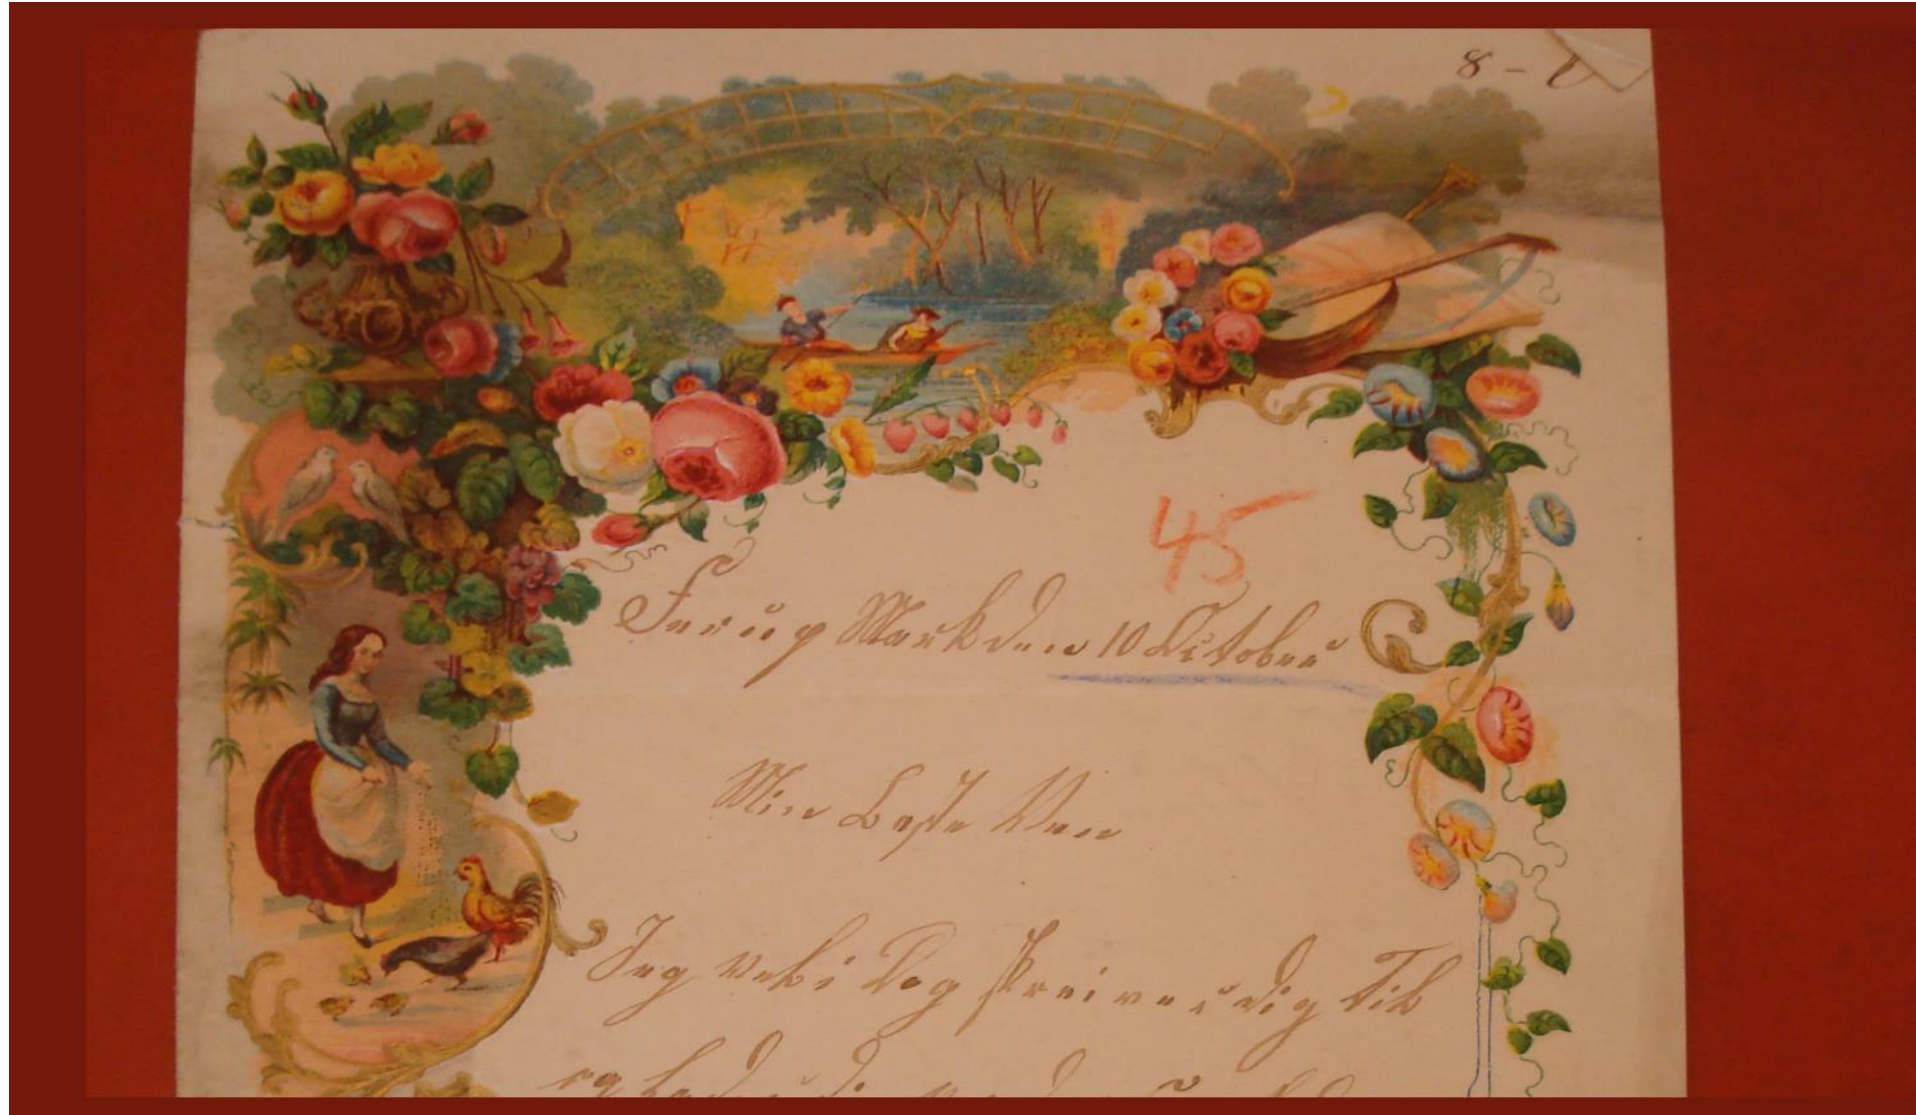 8 -
45
Mark den 10 October
Min Beste Ven
Jeg vel i Dag skreiver dig Til